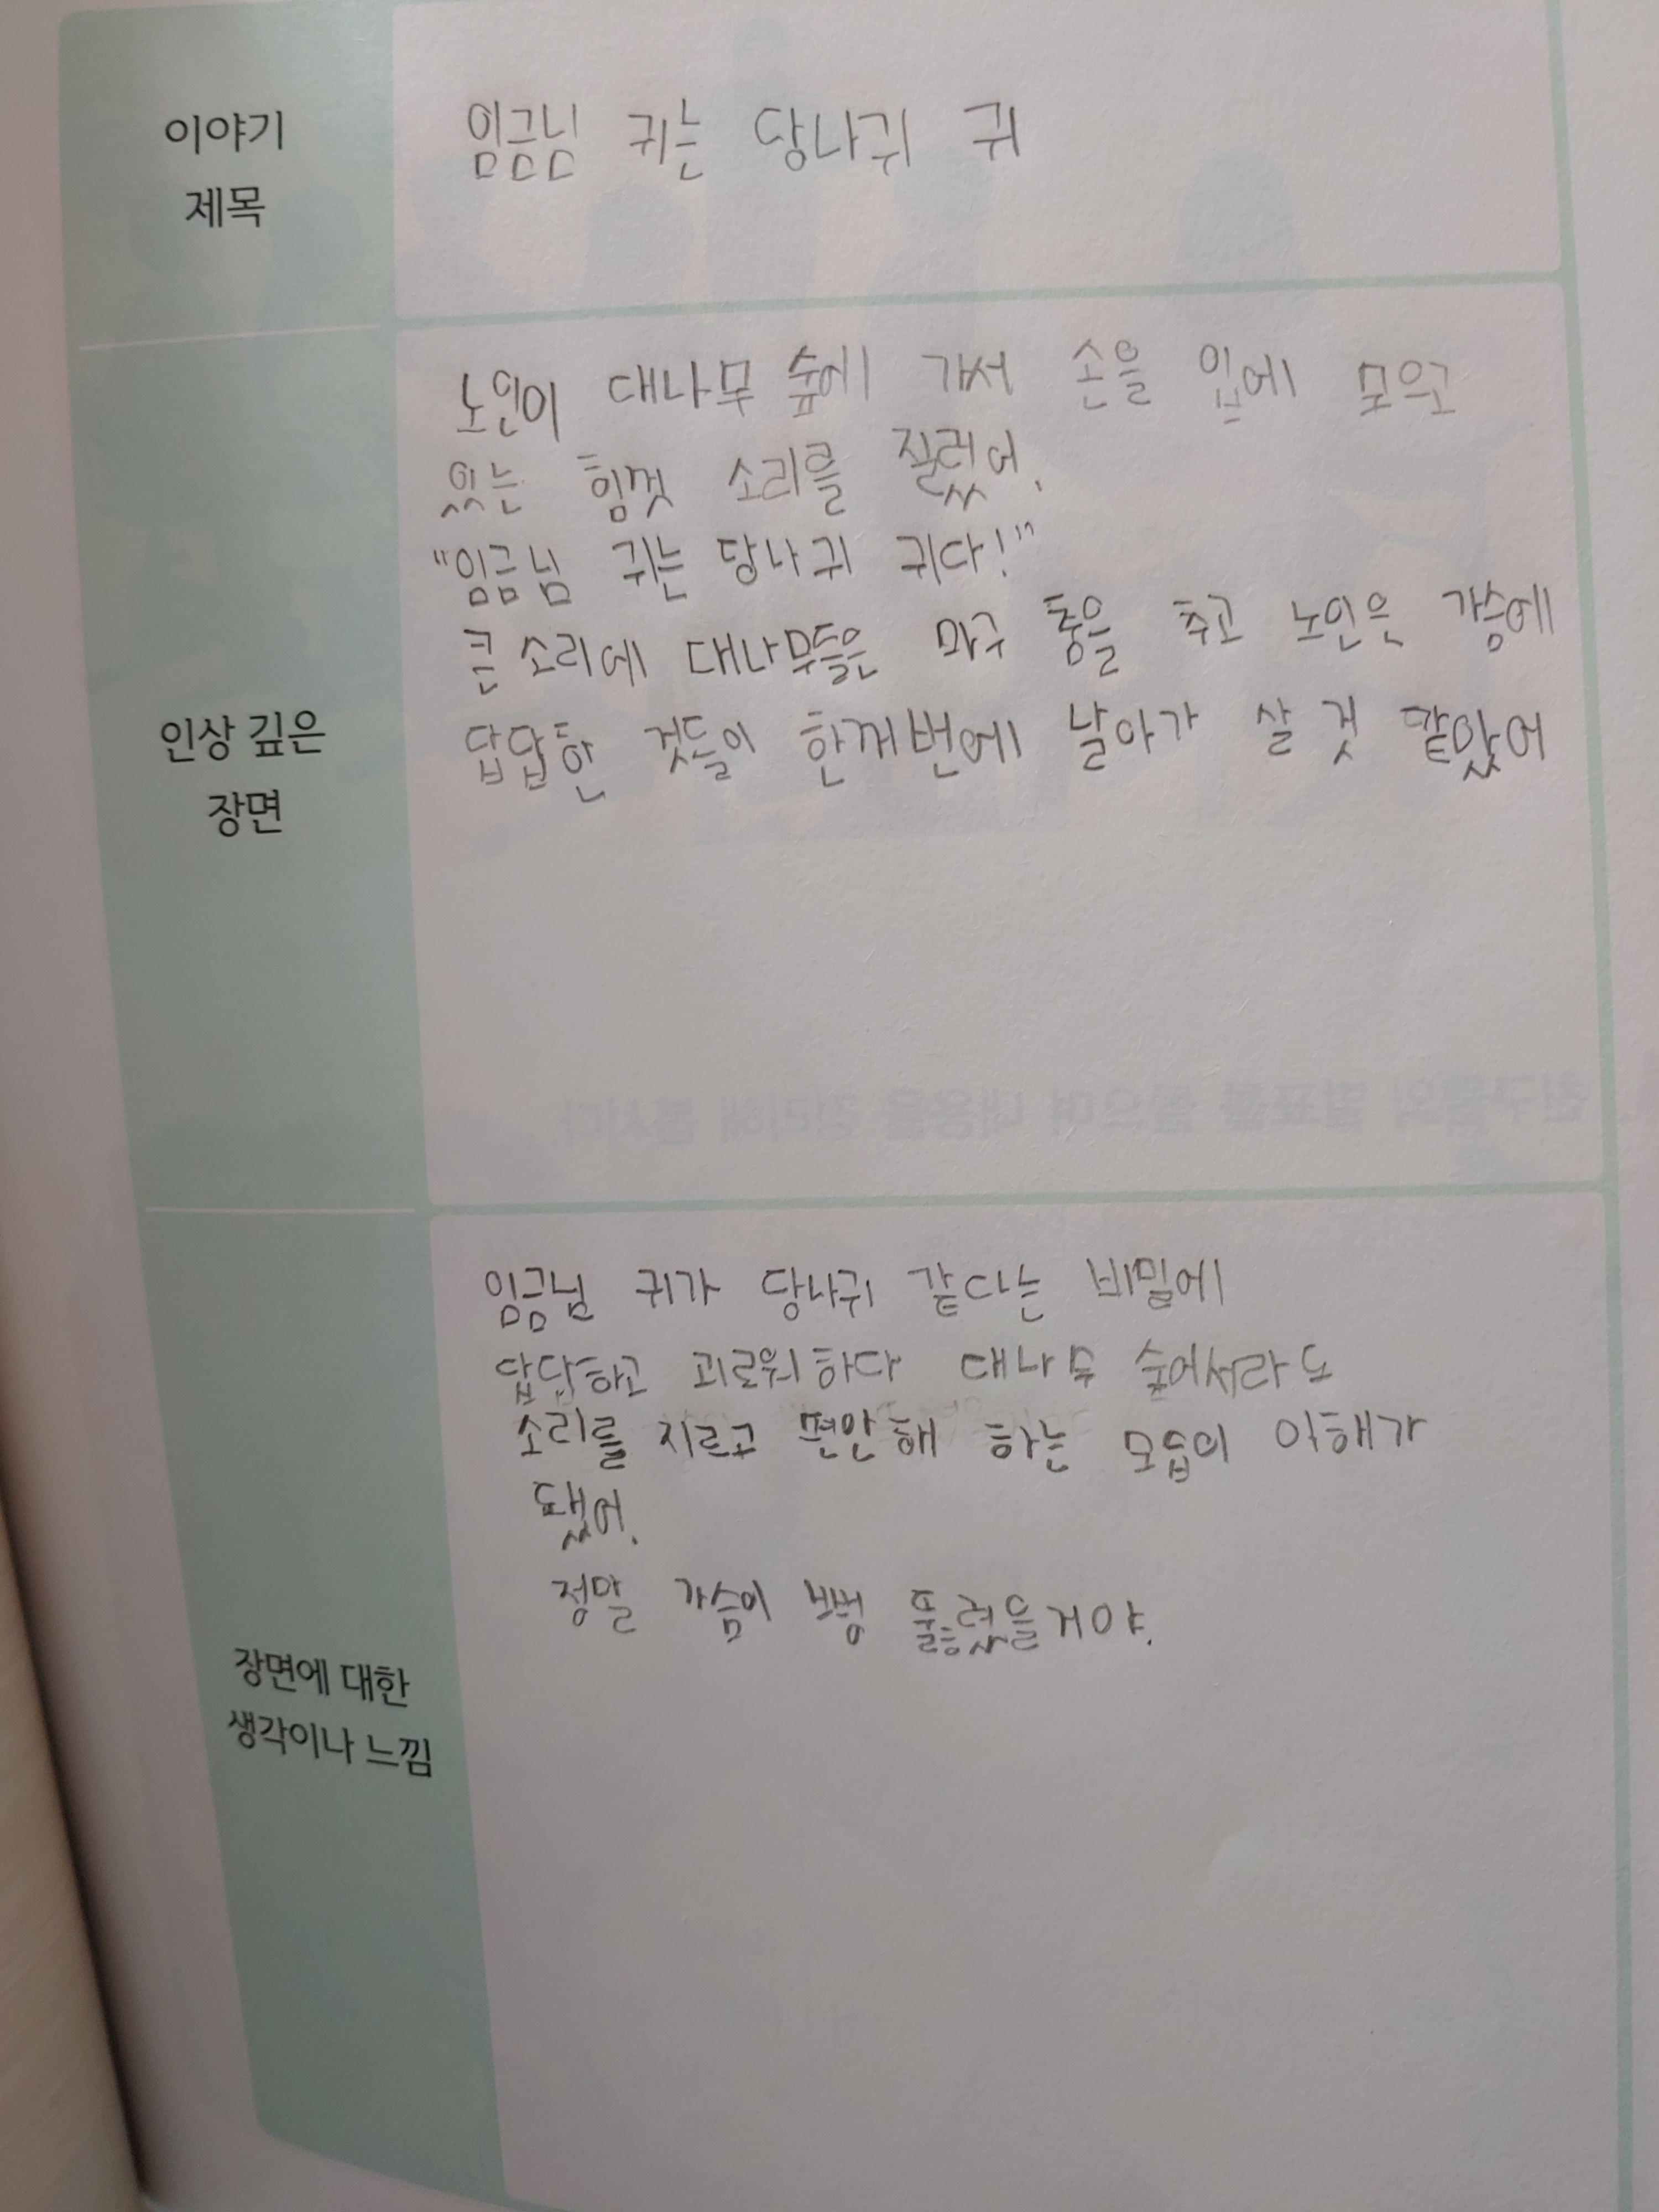 이야기
제목
임금님 귀는 당나귀 귀
인상 깊은
장면
노인이 대나무 숲에 가서 손을 입에 모으고
있는 힘껏 소리를 질렀어.
"임금님 귀는 당나귀 귀다!"
큰 소리에 대나무들은 마구 춤을 추고 노인은 가슴에
답답한 것들이 한꺼번에 날아가 살 것 같았어
장면에 대한
생각이나 느낌
임금님 귀가 당나귀 같다는 비밀에
답답하고 괴로워하다 대나무 숲에서라도
소리를 지르고 편안해 하는 모습이 이해가
됐어.
정말 가슴이 뻥